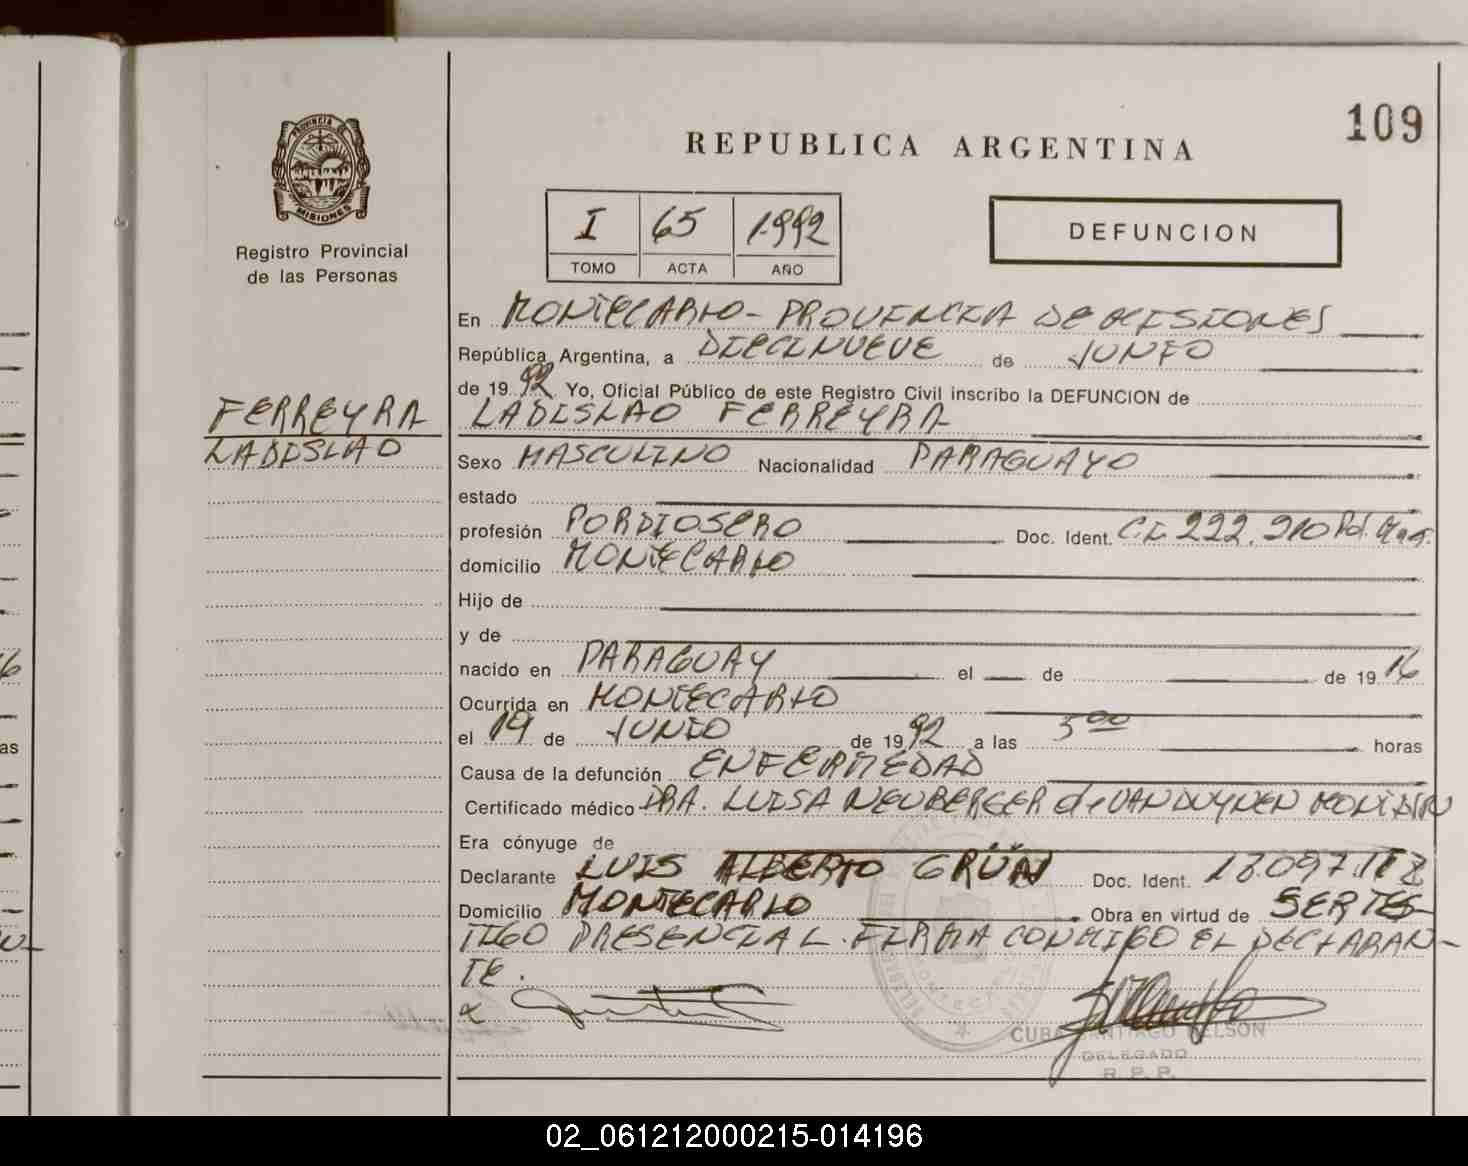 109
REPUBLICA ARGENTINA
PROVINCIA DE
MISIONES
Registro Provincial
de las Personas
I 65 1992
TOMO ACTA AÑO
DEFUNCION
En MONTECARLO - PROVINCIA DE MISIONES
República Argentina, a DIECINUEVE de JUNIO
de 19 92 Yo, Oficial Público de este Registro Civil inscribo la DEFUNCION de
FERREYRA
LADISLAO
LADISLAO FERREYRA
Sexo MASCULINO Nacionalidad PARAGUAYO
estado
profesión PORDIOSERO Doc. Ident. C.I. 222.910 Pol.
domicilio MONTECARLO
Hijo de
y de
nacido en PARAGUAY el de de 19 16
Ocurrida en MONTECARLO
el 19 de JUNIO de 19 92 a las 5 00 horas
Causa de la defunción ENFERMEDAD
Certificado médico DRA. LUISA NEUBERGER de VAN DUYNEN
Era cónyuge de
Declarante LUIS ALBERTO GRÜN Doc. Ident. 18.097.118
Domicilio MONTECARLO Obra en virtud de SER TES-
TIGO PRESENCIAL. FIRMA CONMIGO EL DECLARAN-
TE.
CUBA SANTIAGO NELSON
DELEGADO
R. P. P.
02_061212000215-014196